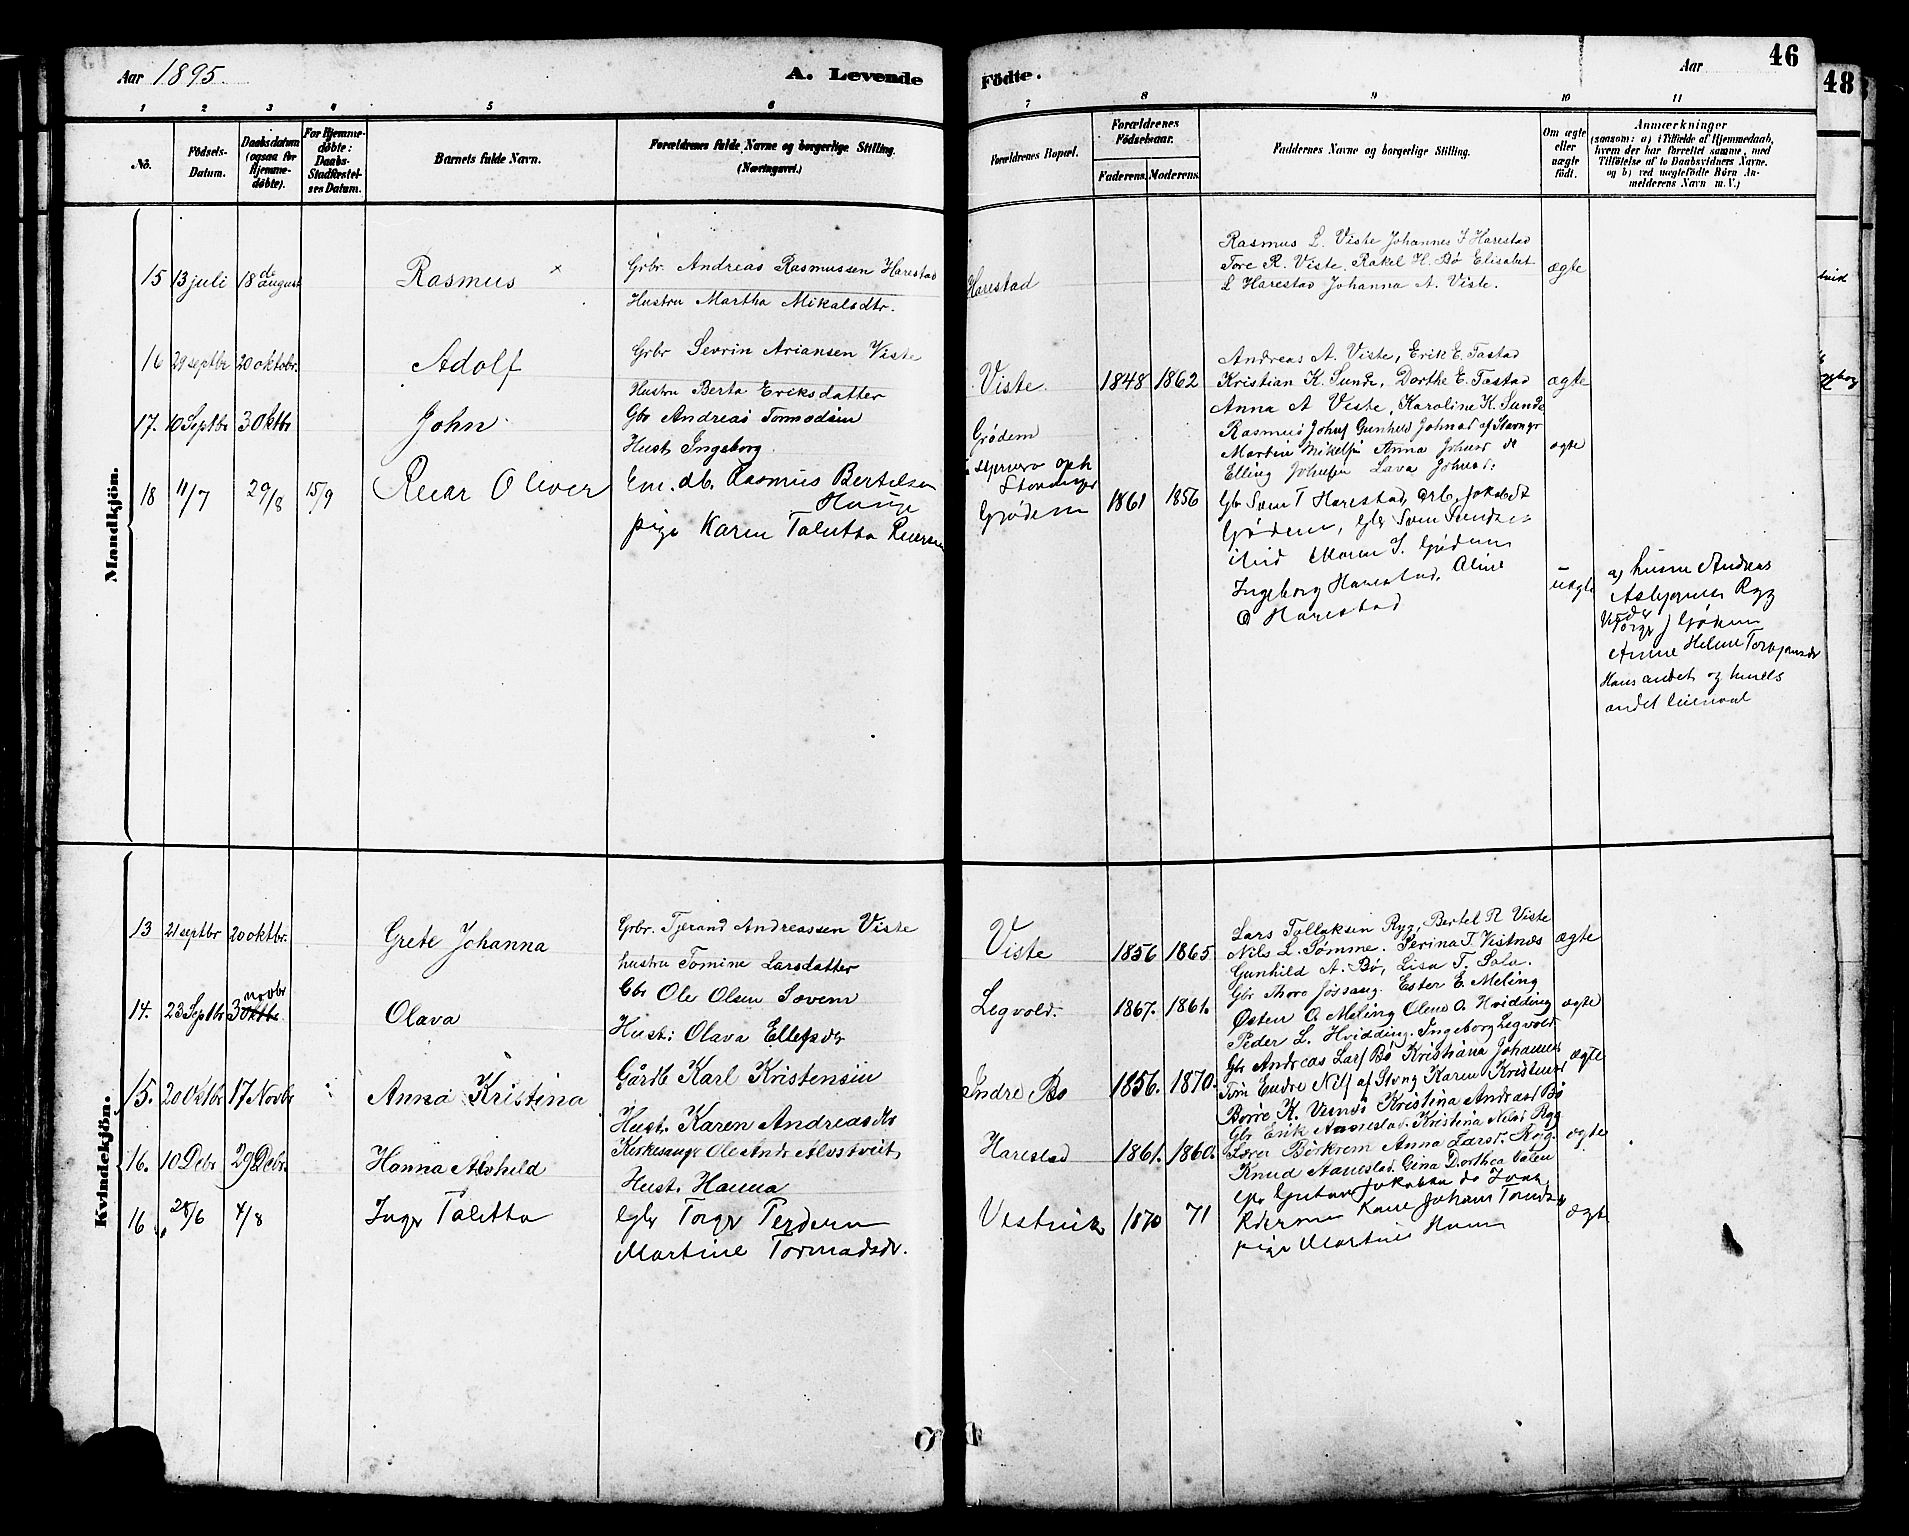 Aar 1895.
A. Levende
Födte.
Aar
46
48
1 2 3 4 5 6 7 8 9 10 11
Nô.
Födsels-Datum.
Daabsdatum (ogsaa for Hjemme-döbte).
For Hjemme-döbte: Daabs-Stadfæstel-ses Datum.
Barnets fulde Navn.
Forældrenes fulde Navne og borgerlige Stilling.
(Næringsvei.)
Forældrenes Bopæl.
Forældrenes Födselsaar.
Faderens.
Moderens.
Faddernes Navne og borgerlige Stilling.
Om ægte eller uægte födt.
Anmærkninger
(saasom: a) i Tilfælde af Hjemmedaab,
hvem der har forrettet samme, med
Tilföielse af to Daabsvidners Navne.
og b) ved uægtefödte Börn An-
melderens Navn m. V.)
Mandkjön.
15 13 juli 18 de august Rasmus ×
Grbr. Andreas Rasmussen Harestad
Hustru Martha Mikalsdtr.
Harestad
Rasmus L. Viste Johannes J Harestad
Tore R. Viste. Rakel H. Bö Elisabet
L Harestad Johanna A. Viste.
ægte
16 29 septbr 20 oktobr. Adolf
Grbr Sevrin Ariansen Viste
Hustru Berta Eriksdatter
Viste. 1848 1862
Andreas A. Viste, Erik E. Tastad
Kristian K. Sunde, Dorthe E. Tastad
Anna A Viste, Karoline K. Sunde
ægte
17. 10 Septbr 3 Oktbr John
Gbr Andreas Tormodsen
Hust. Ingeborg.
Grödem
Rasmus Johns Gunhild Johnsd af Stavngr
Martin Mikelsen Anna Johnsd do
Elling Johnsen Lava Johnsd:
ægte
18 11/7 29/8 15/9 Reiar Oliver
Em. db. Rasmus Bertelsen
Hauge
pige Karen Talette
Stavanger
Grödem 1861 1856
Gbr Sven T Harestad,
Ingeborg Harestad, Oline
O Harestad
uægte
a) husm Andreas
Ryg
Anne Helene
Hans andet og hendes
andet leiermaal
Kvindekjön.
13 21 septbr 20 oktbr. Grete Johanna
Grbr. Tjerand Andreassen Viste
hustru Tomine Larsdatter
Viste 1856 1865
Lars Tollaksen Ryg, Bertel R Viste
Nils L. Tømme. Serina T. Vistnæs
Gunhild A. Bö, Lisa T. Sola.
ægte
14. 23 Septbr 3 oktbr. novbr Olava
Gbr Ole Olsen Sovem
Hust: Olava Ellefsdtr
Legvold. 1867. 1861.
Gbr Thore Jössang. Ester E. Meling
Østen O Meling Olene O. Hvidding
Peder L. Hvidding. Ingeborg Legvold
ægte
15. 20 Oktbr 17 Novbr Anna Kristina
Gårdb Karl Kristensen
Hust. Karen Andreasdtr
Indre Bø 1856. 1870.
Gbr Andreas Lars Bö Kristiana Johannes
Endre Nils af Stvng Karen Kristensd
Börre K. Kristina Andreasd Bö
ægte
16. 10 Debr 29 Debr. Hanna Alvhild
Kirkesanger Ole Andr Alvstveit
Hust. Hanna
Harestad 1861. 1860.
Gbr Erik Aanestad. Kristina Nilsd Ryg
Anna Larsd.
Knud Aanestad. Gina Dorthea Valen
ægte
16. 28/6 4/8 Inger Taletta
Torger Pedersen
Martine Tormodsdr.
Vistvik 1870 71
Gbr Gustav Jakobsen
pige Martine
ægte